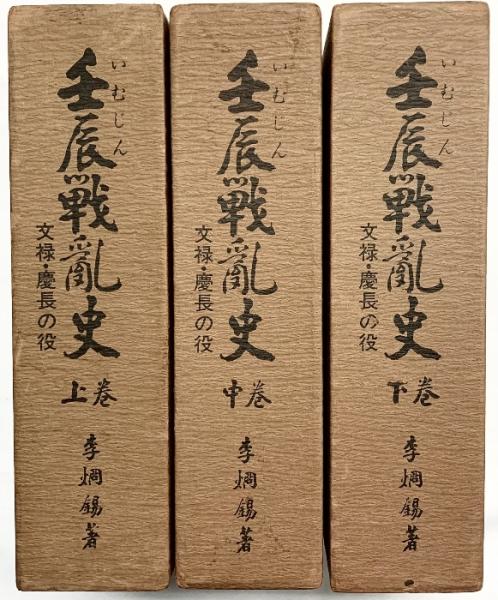 壬辰戦亂史
いむじん
文禄・慶長の役
上巻
李烱錫著
壬辰戦亂史
いむじん
文禄・慶長の役
中巻
李烱錫著
壬辰戦亂史
いむじん
文禄・慶長の役
下巻
李烱錫著